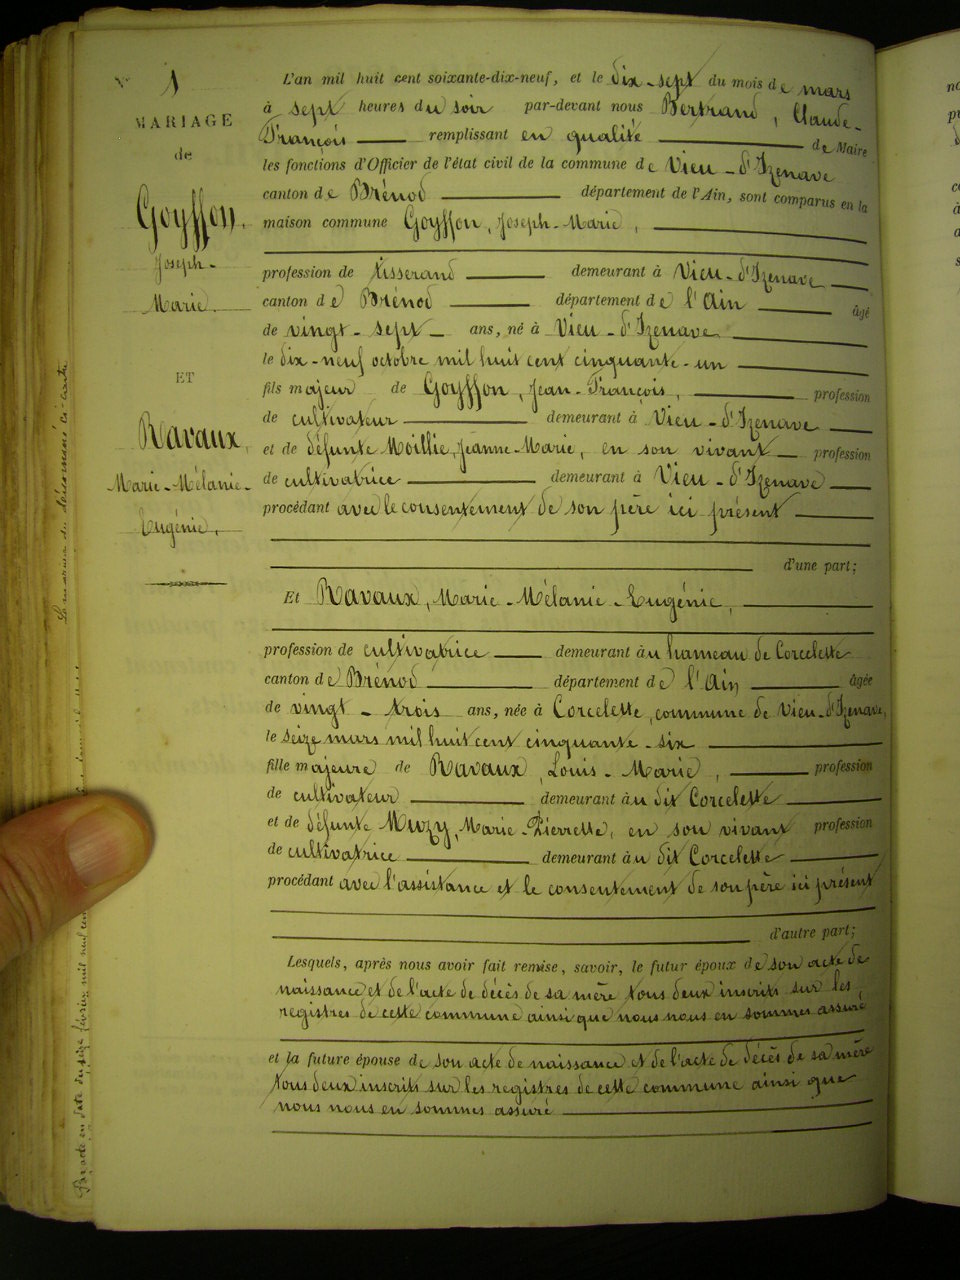 1
MARIAGE
de
Goyffon,
Joseph-
Marie.
ET
Ravaux,
Marie-Mélanie-
Eugénie,
L'an mil huit cent soixante-dix-neuf, et le dix-sept du mois de mars
à sept heures du soir par-devant nous Bertrand, Claude-
François remplissant en qualité de Maire
les fonctions d'Officier de l'état civil de la commune de Vieu-d'Izenave
canton de Brénod département de l'Ain, sont comparus en la
maison commune Goyffon, Joseph-Marie,
profession de tisserand demeurant à Vieu-d'Izenave
canton de Brénod département de l'Ain âgé
de vingt-sept ans, né à Vieu-d'Izenave
le dix-neuf octobre mil huit cent cinquante-un
fils majeur de Goyffon, Jean-François, profession
de cultivateur demeurant à Vieu-d'Izenave
et de défunte Moillie, Jeanne-Marie, en son vivant profession
de cultivatrice demeurant à Vieu-d'Izenave
procédant avec le consentement de son père ici présent
d'une part;
Et Ravaux, Marie-Mélanie-Eugénie,
profession de cultivatrice demeurant au hameau de Corcelette
canton de Brénod département de l'Ain âgée
de vingt-trois ans, née à Corcelette, commune de Vieu-d'Izenave,
le seize mars mil huit cent cinquante-six
fille majeure de Ravaux, Louis-Marie, profession
de cultivateur demeurant au dit Corcelette
et de défunte Muzy, Marie-Pierrette, en son vivant profession
de cultivatrice demeurant au dit Corcelette
procédant avec l'assistance et le consentement de son père ici présent
d'autre part;
Lesquels, après nous avoir fait remise, savoir, le futur époux de son acte de
naissance et de l'acte de décès de sa mère tous deux inscrits sur les
registres de cette commune ainsi que nous nous en sommes assuré
et la future épouse de son acte de naissance et de l'acte de décès de sa mère
tous deux inscrits sur les registres de cette commune ainsi que
nous nous en sommes assuré
Par acte en date du seize février mil neuf cent